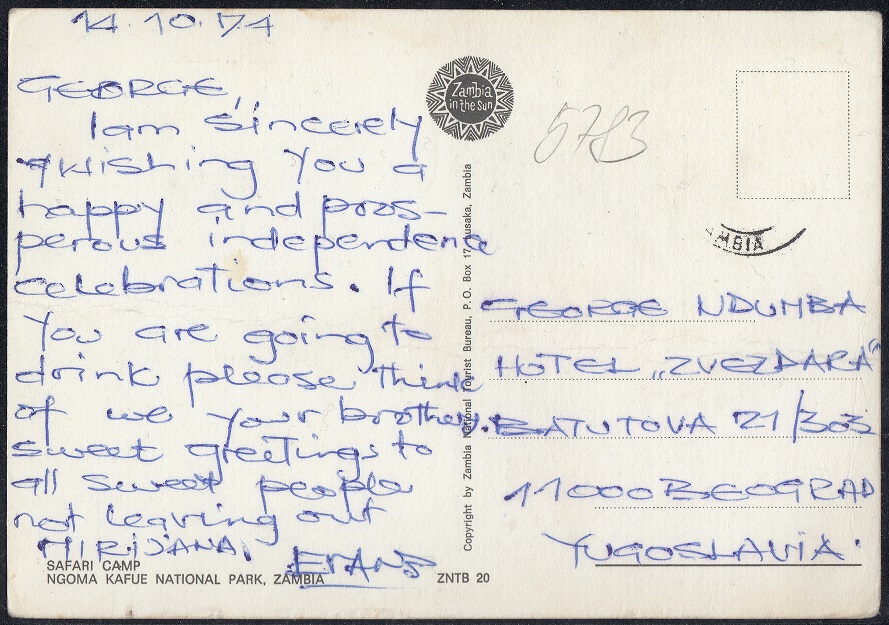 14.10.74
GEORGE,
I am Sincerely
Wishing You a
happy and pros-
perous independence
celebrations. If
You are going to
drink please think
of we your brothers.
Sweet greetings to
all sweet people
not leaving out
MIRIJANA.
EVANS
SAFARI CAMP
NGOMA KAFUE NATIONAL PARK, ZAMBIA
ZNTB 20
Copyright by Zambia National Tourist Bureau, P.O. Box 17, Lusaka, Zambia
Zambia
in the sun
5783
MBIA
GEORGE NDUMBA
HOTEL „ZVEZDARA"
BATUTOVA 21/303
11000 BEOGRAD
YUGOSLAVIA.